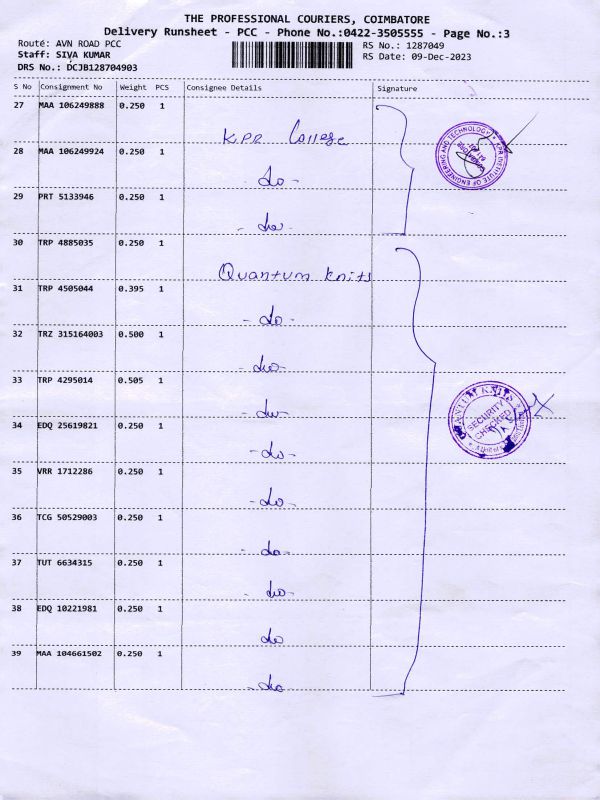 THE PROFESSIONAL COURIERS, COIMBATORE
Delivery Runsheet - PCC - Phone No.:0422-3505555 - Page No.:3
Route: AVN ROAD PCC
RS No.: 1287049
Staff: SIVA KUMAR
RS Date: 09-Dec-2023
DRS No.: DCJB128704903
S No Consignment No Weight PCS Consignee Details Signature
27 MAA 106249888 0.250 1 KPR College
28 MAA 106249924 0.250 1 -do-
29 PRT 5133946 0.250 1 -do-
30 TRP 4885035 0.250 1 Quantum knits
31 TRP 4505044 0.395 1 -do-
32 TRZ 315164003 0.500 1 -do-
33 TRP 4295014 0.505 1 -do-
34 EDQ 25619821 0.250 1 -do-
35 VRR 1712286 0.250 1 -do-
36 TCG 50529003 0.250 1 -do-
37 TUT 6634315 0.250 1 -do-
38 EDQ 10221981 0.250 1 do
39 MAA 104661502 0.250 1 -do-
KPR INSTITUTE OF ENGINEERING AND TECHNOLOGY
COIMBATORE
641 407
QUANTUM KNITS
SECURITY
CHECKED